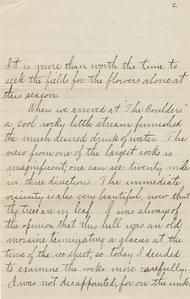 2
It is more than worth the time to
seek the fields for the flowers alone at
this season.
When we arrived at "The Boulders"
a cool rocky little stream furnished
the much desired drink of water. The
view from one of the largest rocks is
magnificent; one can see twenty miles
in three directions. The immediate
vicinity is also very beautiful, now that
the trees are in leaf. I was always of
the opinion that this hill was an old
moraine terminating a glacier at the
time of the ice sheet, so today I decided
to examine the rocks more carefully.
I was not disappointed, for on the under